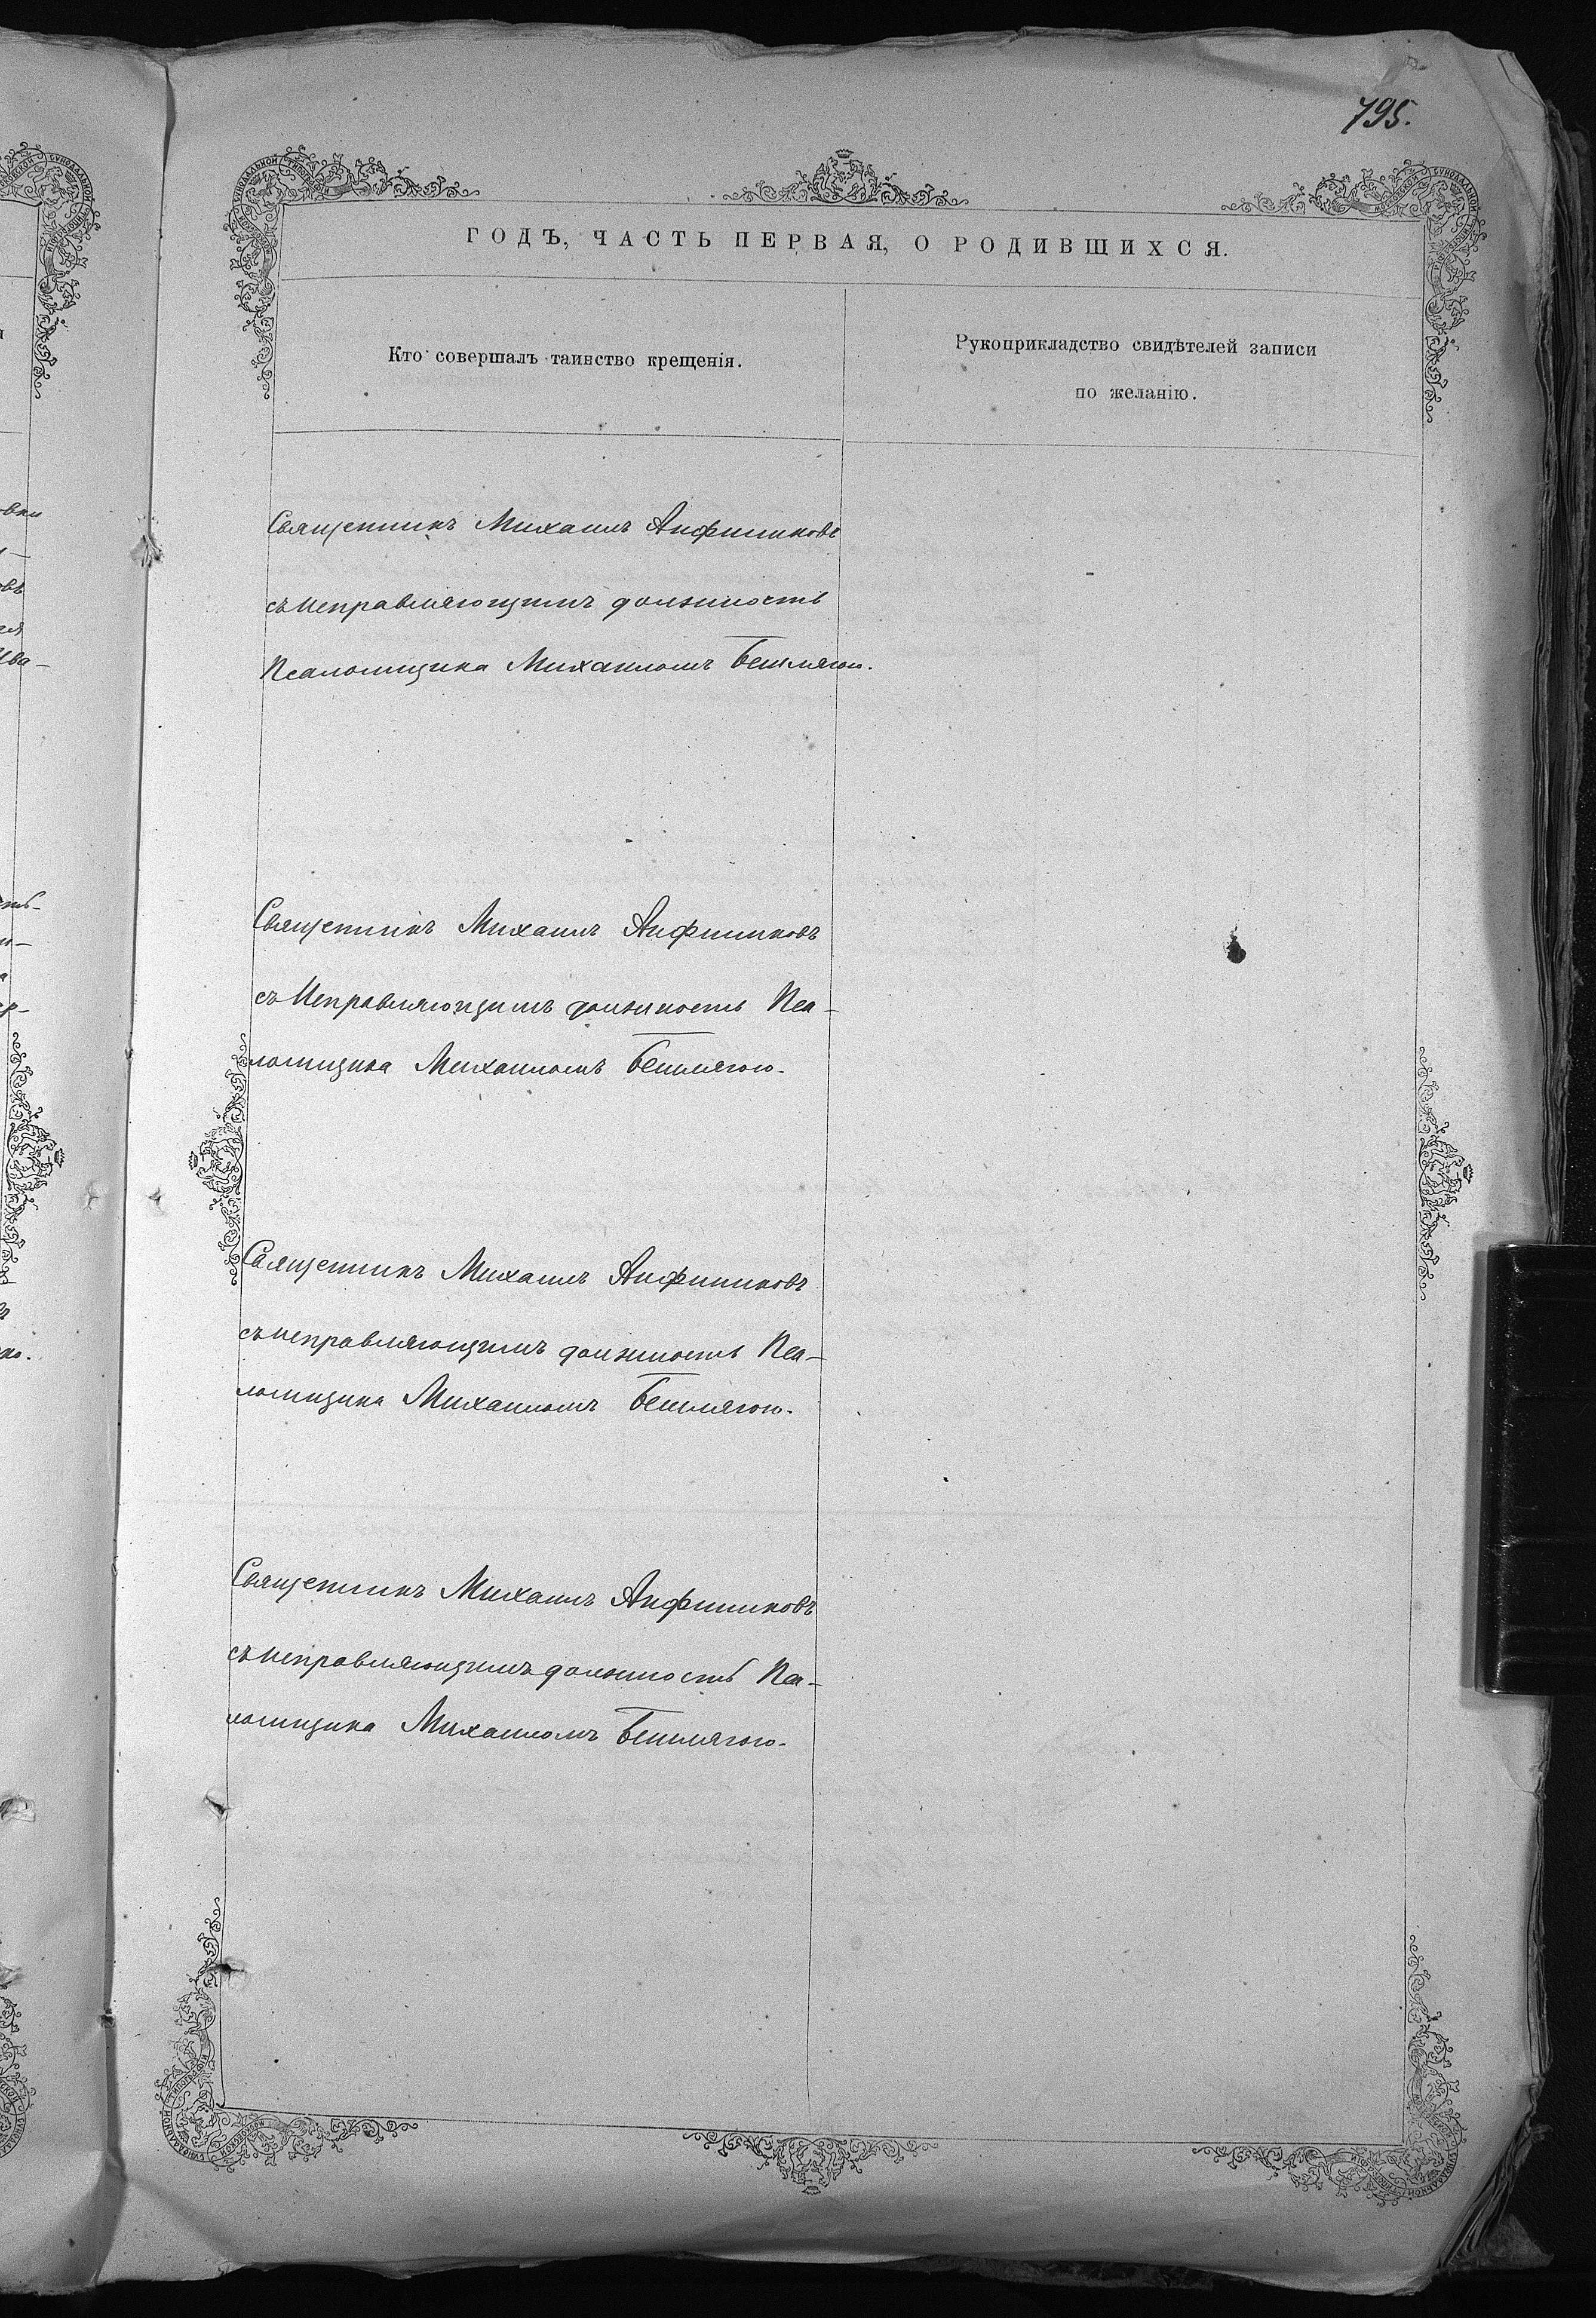 795.
ГОДЪ, ЧАСТЬ ПЕРВАЯ, О РОДИВШИХСЯ.
Кто совершалъ таинство крещенія.
Рукоприкладство свидѣтелей записи
по желанію.
Священникъ Михаилъ Анфиниковъ
съ исправляющимъ должность
Псаломщика Михаиломъ
Священникъ Михаилъ Анфиниковъ
съ Исправляющимъ должность Пса-
ломщика Михаиломъ
Священникъ Михаилъ Анфиниковъ
съ исправляющимъ должность Пса-
ломщика Михаиломъ
Священникъ Михаилъ Анфиниковъ
съ исправляющимъ должность Пса-
ломщика Михаиломъ